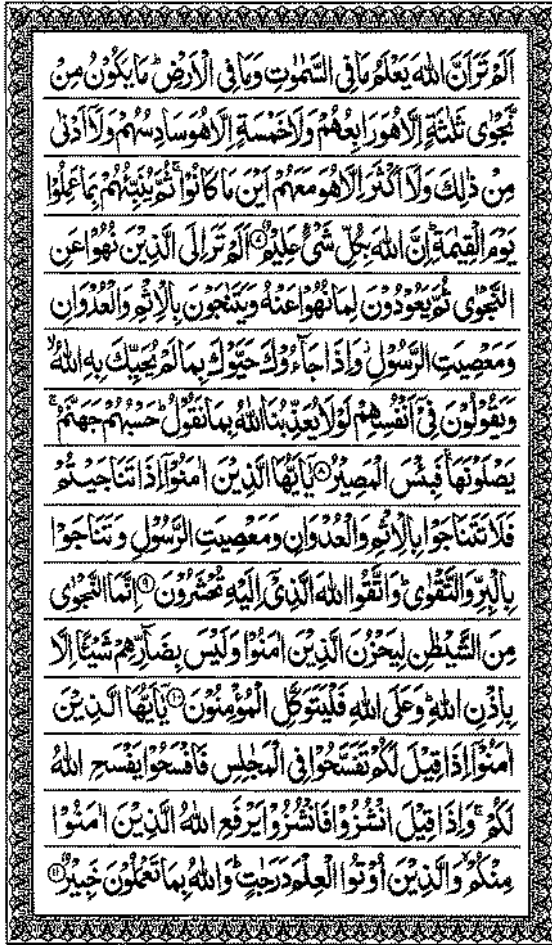 اَلَمْ تَرَ اَنَّ اللّٰهَ يَعْلَمُ مَا فِى السَّمٰوٰتِ وَمَا فِى الْاَرْضِ ؕ مَا يَكُوْنُ مِنْ
نَّجْوٰى ثَلٰثَةٍ اِلَّا هُوَ رَابِعُهُمْ وَلَا خَمْسَةٍ اِلَّا هُوَ سَادِسُهُمْ وَلَاۤ اَدْنٰى
مِنْ ذٰلِكَ وَلَاۤ اَكْثَرَ اِلَّا هُوَ مَعَهُمْ اَيْنَ مَا كَانُوْا ۚ ثُمَّ يُنَبِّئُهُمْ بِمَا عَمِلُوْا
يَوْمَ الْقِيٰمَةِ ؕ اِنَّ اللّٰهَ بِكُلِّ شَىْءٍ عَلِيْمٌ ۝۷ اَلَمْ تَرَ اِلَى الَّذِيْنَ نُهُوْا عَنِ
النَّجْوٰى ثُمَّ يَعُوْدُوْنَ لِمَا نُهُوْا عَنْهُ وَيَتَنٰجَوْنَ بِالْاِثْمِ وَالْعُدْوَانِ
وَمَعْصِيَتِ الرَّسُوْلِ ؗ وَاِذَا جَآءُوْكَ حَيَّوْكَ بِمَا لَمْ يُحَيِّكَ بِهِ اللّٰهُ ۙ
وَيَقُوْلُوْنَ فِىْۤ اَنْفُسِهِمْ لَوْلَا يُعَذِّبُنَا اللّٰهُ بِمَا نَقُوْلُ ؕ حَسْبُهُمْ جَهَنَّمُ ۚ
يَصْلَوْنَهَا ۚ فَبِئْسَ الْمَصِيْرُ ۝۸ يٰۤاَيُّهَا الَّذِيْنَ اٰمَنُوْۤا اِذَا تَنَاجَيْتُمْ
فَلَا تَتَنَاجَوْا بِالْاِثْمِ وَالْعُدْوَانِ وَمَعْصِيَتِ الرَّسُوْلِ وَتَنَاجَوْا
بِالْبِرِّ وَالتَّقْوٰى ؕ وَاتَّقُوا اللّٰهَ الَّذِىْۤ اِلَيْهِ تُحْشَرُوْنَ ۝۹ اِنَّمَا النَّجْوٰى
مِنَ الشَّيْطٰنِ لِيَحْزُنَ الَّذِيْنَ اٰمَنُوْا وَلَيْسَ بِضَآرِّهِمْ شَيْئًا اِلَّا
بِاِذْنِ اللّٰهِ ؕ وَعَلَى اللّٰهِ فَلْيَتَوَكَّلِ الْمُؤْمِنُوْنَ ۝۱۰ يٰۤاَيُّهَا الَّذِيْنَ
اٰمَنُوْۤا اِذَا قِيْلَ لَكُمْ تَفَسَّحُوْا فِى الْمَجٰلِسِ فَافْسَحُوْا يَفْسَحِ اللّٰهُ
لَكُمْ ۚ وَاِذَا قِيْلَ انْشُزُوْا فَانْشُزُوْا يَرْفَعِ اللّٰهُ الَّذِيْنَ اٰمَنُوْا
مِنْكُمْ ۙ وَالَّذِيْنَ اُوْتُوا الْعِلْمَ دَرَجٰتٍ ؕ وَاللّٰهُ بِمَا تَعْمَلُوْنَ خَبِيْرٌ ۝۱۱